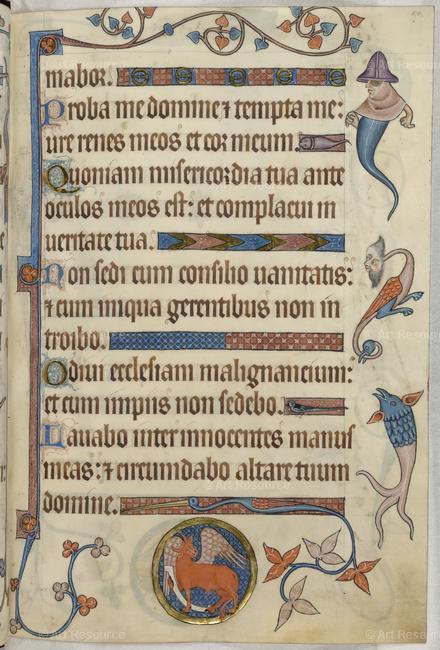 mabor.
Proba me domine ⁊ tempta me:
ure renes meos et cor meum.
Quoniam misericordia tua ante
oculos meos est: et complacui in
ueritate tua.
Non sedi cum consilio uanitatis:
⁊ cum iniqua gerentibus non in
troibo.
Odiui ecclesiam malignancium:
et cum impiis non sedebo.
Lauabo inter innocentes manus
meas: ⁊ circumdabo altare tuum
domine.
© Art Resource